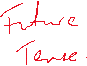 Future
Tense.